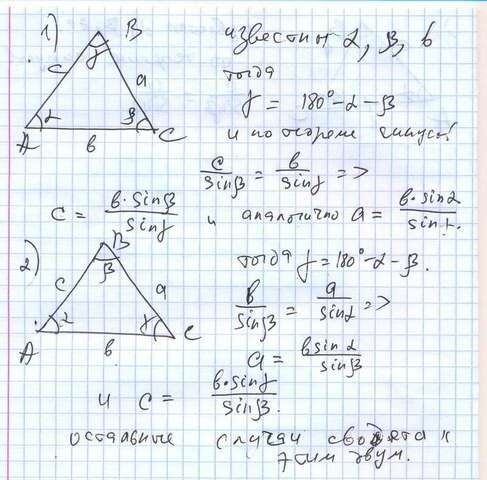 1)
B
γ
c
a
α
β
A
b
C
известны α, β, b
тогда
γ = 180° - α - β
и по теореме синусов:
c/sinβ = b/sinγ =>
c = b·sinβ/sinγ и аналогично a = b·sinα/sinγ.
2)
B
β
c
a
α
γ
A
b
C
тогда γ = 180° - α - β.
b/sinβ = a/sinα =>
a = b sinα/sinβ
и c = b·sinγ/sinβ.
остальные случаи сводятся к
этим двум.